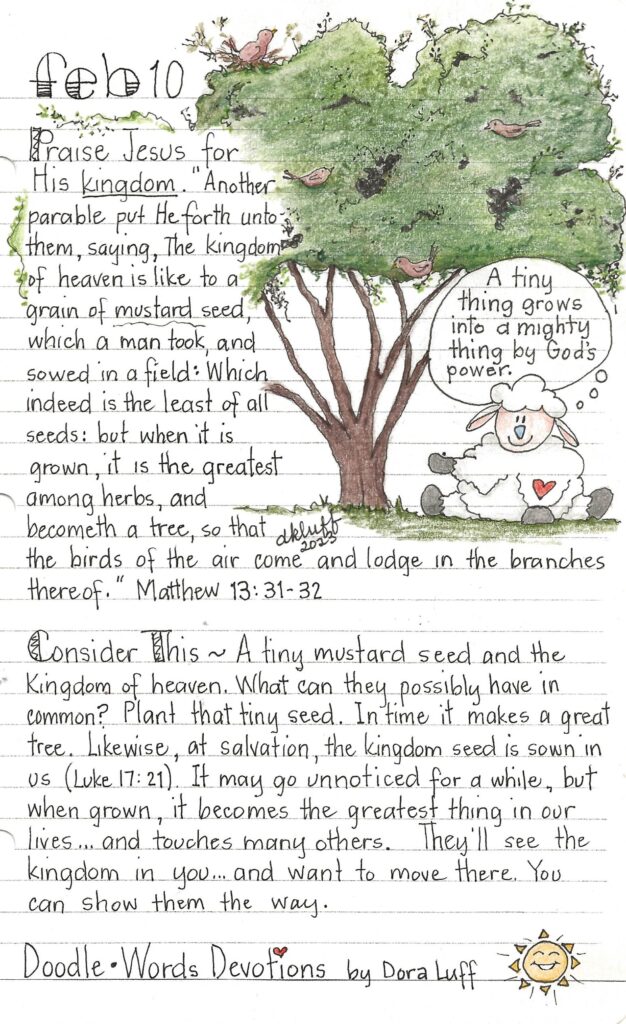 feb 10
Praise Jesus for
His kingdom. "Another
parable put He forth unto
them, saying, The kingdom
of heaven is like to a
grain of mustard seed,
which a man took, and
sowed in a field: Which
indeed is the least of all
seeds: but when it is
grown, it is the greatest
among herbs, and
becometh a tree, so that
the birds of the air come and lodge in the branches
thereof." Matthew 13:31-32
A tiny
thing grows
into a mighty
thing by God's
power.
dkluff
2023
Consider This ~ A tiny mustard seed and the
Kingdom of heaven. What can they possibly have in
common? Plant that tiny seed. In time it makes a great
tree. Likewise, at salvation, the kingdom seed is sown in
us (Luke 17:21). It may go unnoticed for a while, but
when grown, it becomes the greatest thing in our
lives... and touches many others. They'll see the
kingdom in you... and want to move there. You
can show them the way.
Doodle • Words Devotions by Dora Luff